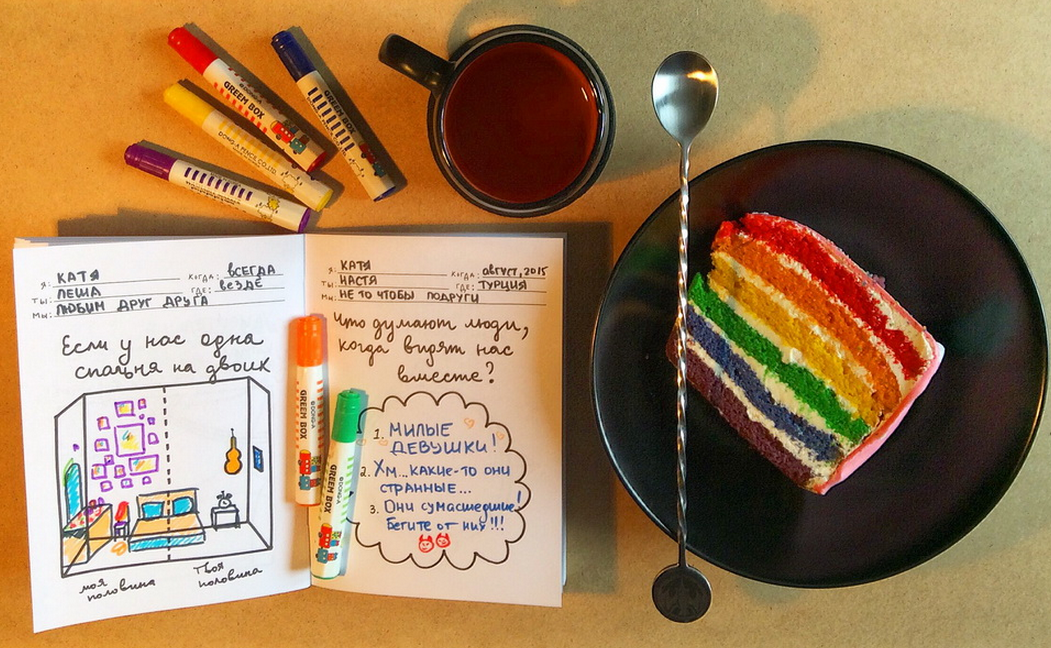 GREEM BOX
GREEM BOX
DONG-A PENCIL CO., LTD.
Я: КАТЯ КОГДА: ВСЕГДА
ТЫ: ЛЕША ГДЕ: ВЕЗДЕ
МЫ: ЛЮБИМ ДРУГ ДРУГА
Если у нас одна
спальня на двоих
моя
половина
Твоя
половина
Я: КАТЯ КОГДА: АВГУСТ, 2015
ТЫ: НАСТЯ ГДЕ: ТУРЦИЯ
МЫ: НЕ ТО ЧТОБЫ ПОДРУГИ
Что думают люди,
когда видят нас
вместе?
1. МИЛЫЕ
ДЕВУШКИ!
2. Хм...какие-то они
странные...
3. Они сумасшедшие!
Бегите от них!!!
GREEM BOX
DONG-A
GREEM BOX
DONG-A